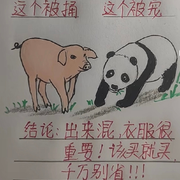 这个被捅 这个被宠
结论:出来混,衣服很
重要!该买就买
千万别省!!!